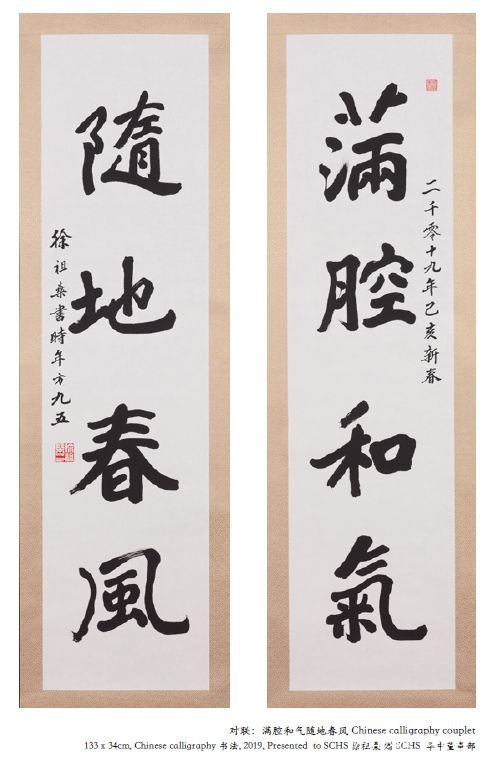 二千零十九年己亥新春
滿腔和氣
隨地春風
徐祖燊書時年方九五
对联：满腔和气随地春风 Chinese calligraphy couplet
133 x 34cm, Chinese calligraphy 书法, 2019, Presented to SCHS 徐祖燊 赠SCHS 华中董事部